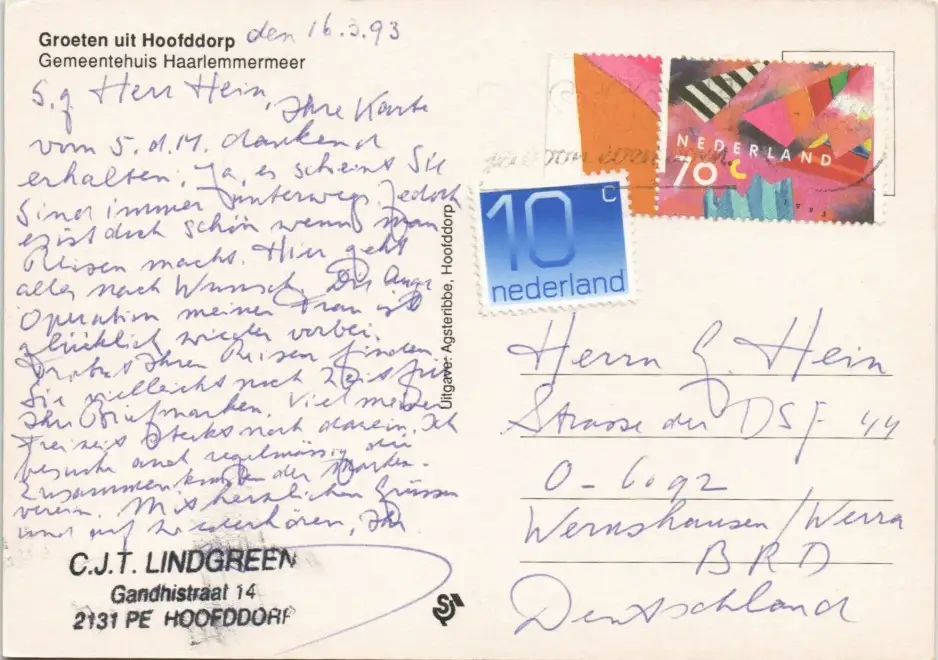 Groeten uit Hoofddorp den 16.3.93
Gemeentehuis Haarlemmermeer
S.g Herr Hein, Ihre Karte
vom 5. d.M. dankend
erhalten. Ja, es scheint Sie
sind immer unterwegs. Jedoch
es ist doch schön wenn man
Reisen macht. Hier geht
alles nach Wunsch. Die Auge
Operation meiner Frau ist
glücklich wieder vorbei.
Trotz Ihren Reisen finden
Sie vielleicht noch Zeit für
Ihre Briefmarken. Viel meiner
Freizeit steckt noch darein. Ich
besuche auch regelmässig die
Zusammenkünfte der Marken-
verein. Mit herzlichen Grüssen
und auf Wiederhören, Ihr
C.J.T. LINDGREEN
Gandhistraat 14
2131 PE HOOFDDORP
Uitgave: Agsteribbe, Hoofddorp
NEDERLAND
70 c
1993
10 c
nederland
Herrn G. Hein
Strasse der DSF 44
O-6092
Wernshausen/Werra
BRD
Deutschland